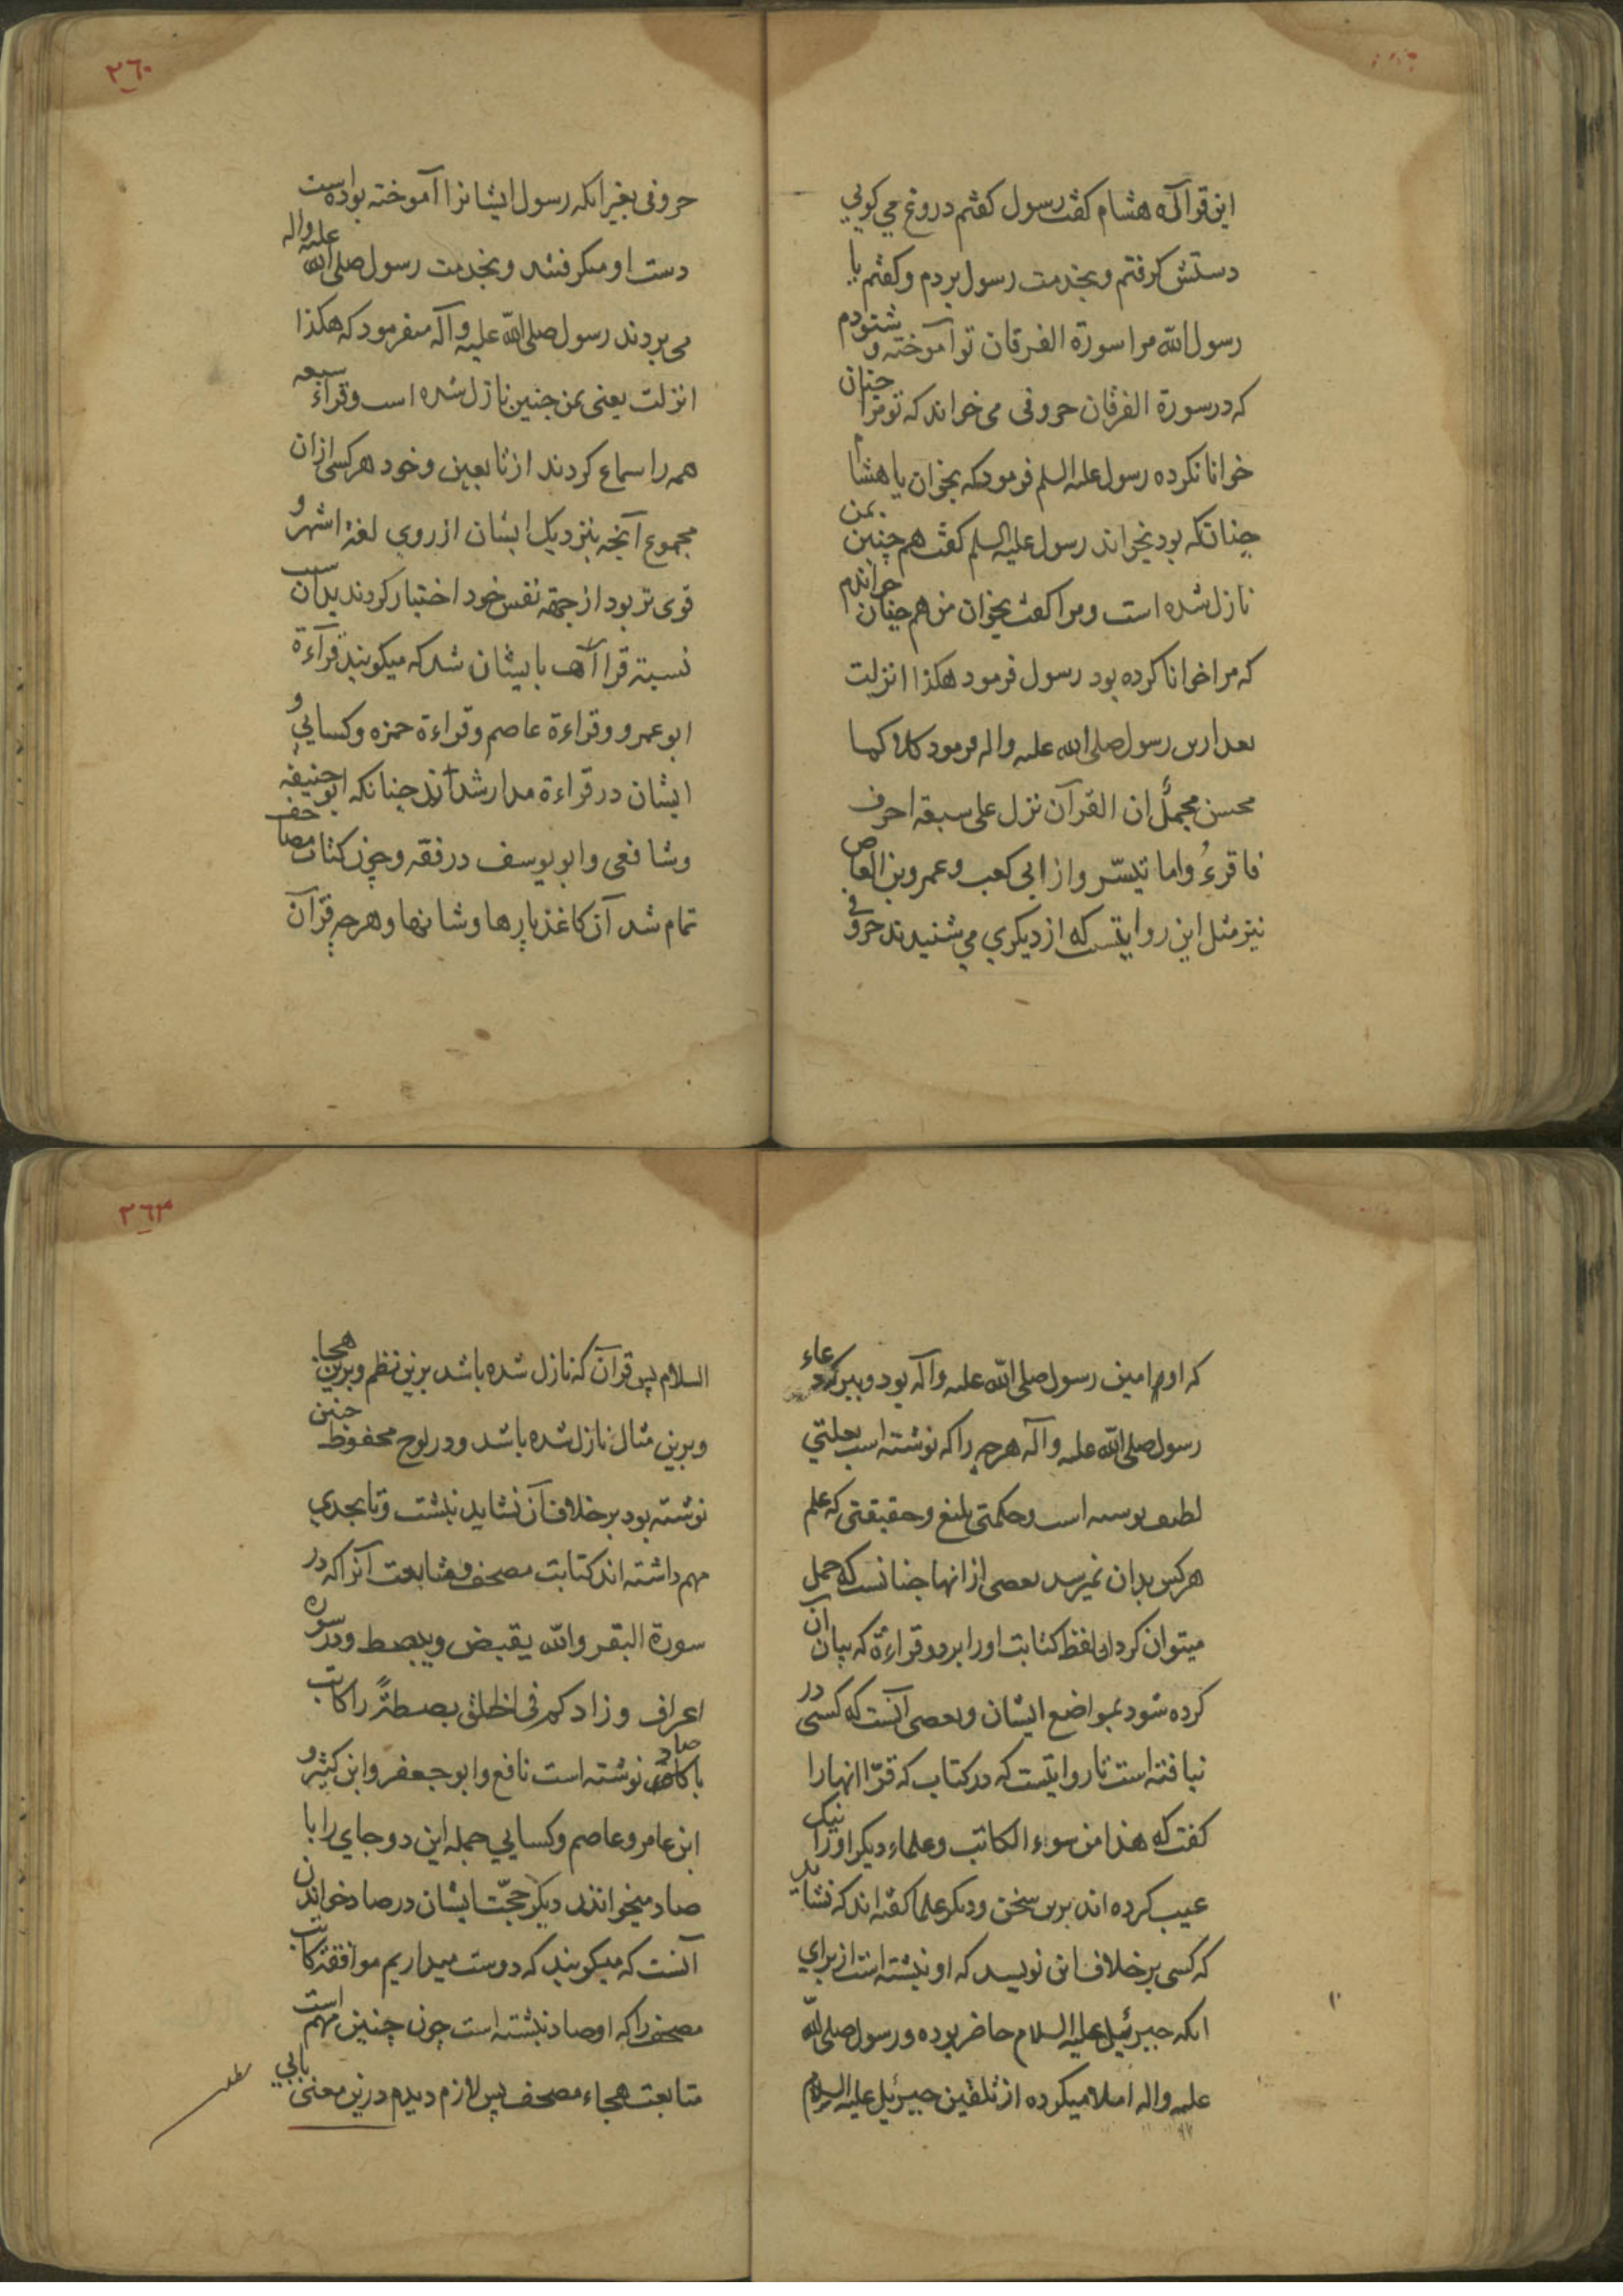 این قراآه هشام کفت رسول کفتم دروغ می کویی
دستش کرفتم و بخدمت رسول بردم و کفتم یا
رسول الله مرا سورة الفرقان تو آموخته و شنودم
که در سورة الفرقان حروفی می خواند که تو مرا چنان
خوانا نکرده رسول علیه السلم فرمود که بخوان یا هشام
چنانکه بود بخواند رسول علیه السلم کفت هم چنین بمن
نازل شده است و مرا کفت بخوان من هم چنان خواندم
که مرا خوانا کرده بود رسول فرمود هکذا انزلت
بعد ازین رسول صلی الله علیه واله فرمود کلا کما
محسن مجمل ان القرآن نزل علی سبعة احرف
فاقرءُوا ما تیسّر و از ابی کعب و عمرو بن العاص
نیز مثل این روایتست که از دیکری می شنیدند حروفی
۲۶۰
حروفی بغیر انکه رسول ایشانرا آموخته بوده است
دست او میکرفتند و بخدمت رسول صلی الله علیه واله
می بردند رسول صلی الله علیه وآله میفرمود که هکذا
انزلت یعنی بمن چنین نازل شده است و قراء سبعه
همه را سماع کردند از تابعین و خود هر کسی ازان
مجموع آنچه بنزدیک ایشان از روی لغة اشهر و
قوی تر بود از جهة نفس خود اختیار کردند بدان سبب
نسبة قراآت بایشان شد که میکویند قرآءة
ابو عمرو و قراءة عاصم و قراءة حمزه و کسایی و
ایشان در قراءة مدار شدند چنانکه ابو حنیفه
و شافعی و ابو یوسف در فقه و چون کتاب مصاحف
تمام شد آن کاغذ پارها و شانها و هرچه قرآن
که او امین رسول صلی الله علیه وآله بود و ببرکه دعاء
رسول صلی الله علیه وآله هرچه را که نوشته است بعلتی
لطیف نوشته است و حکمتی بلیغ و حقیقتی که علم
هر کس بدان نمیرسد بعضی از انها چنانست که حمل
میتوان کرد لفظ کتابت او را بر دو قراءة که بیان آن
کرده شود بمواضع ایشان و بعضی آنست که کسی در
نیافته است تا روایتست که در کتاب که قرّا انها را
کفت که هذا من سوء الکاتب و علماء دیکر او را نیک
عیب کرده اند برین سخن و دیکر علما کفته اند که نشاید
که کسی بر خلاف ان نویسد که او نبشته است از برای
انکه جبرئیل علیه السلام حاضر بوده و رسول صلی الله
علیه واله املا میکرده از تلقین جبرئیل علیه السلام
۲۶۳
السلام پس قرآن که نازل شده باشد برین نظم و برین هجا
و برین مثال نازل شده باشد و در لوح محفوظ چنین
نوشته بود بر خلاف آن نشاید نبشت و تا بحدی
مهم داشته اند کتابت مصحف و متابعت آنرا که در
سورة البقر والله یقبض ویبصط و در سوره
اعراف وزادکم فی الخلق بصطةً را کاتب
با صاد نوشته است نافع و ابو جعفر و ابن کثیر و
ابن عامر و عاصم و کسایی جمله این دو جای را با
صاد میخوانند دیکر حجّت ایشان در صاد خواندن
آنست که میکویند که دوست میداریم موافقة کاتب
مصحف را که او صاد نبشته است چون چنین مهم است
متابعت هجاء مصحف پس لازم دیدم درین معنی بابی